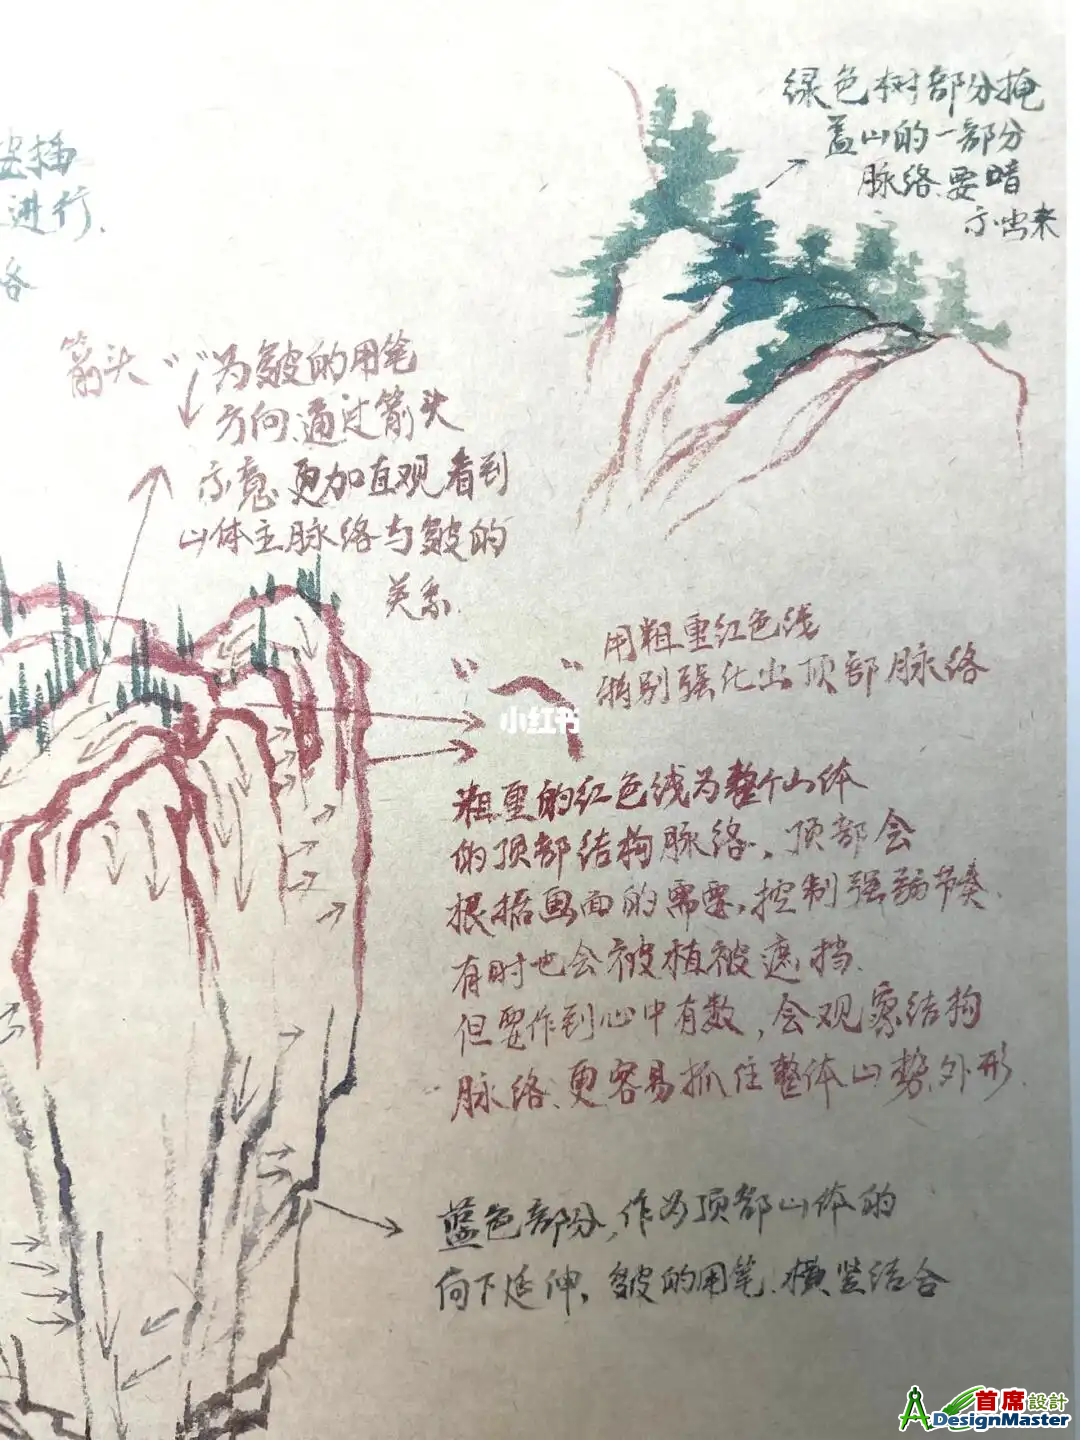 绿色树部分掩
盖山的一部分
脉络、要暗
示出来
安插
进行、
各
箭头“↙”为皴的用笔
方向、通过箭头
示意、更加直观看到
山体主脉络与皴的
关系、
用粗重红色线
特别强化出顶部脉络
小红书
粗重的红色线为整个山体
的顶部结构脉络、顶部会
根据画面的需要,控制强弱节奏、
有时也会被植被遮挡、
但要作到心中有数,会观察结构
脉络、更容易抓住整体山势、外形、
蓝色部分,作为顶部山体的
向下延伸、皴的用笔、横竖结合
首席設計
DesignMaster